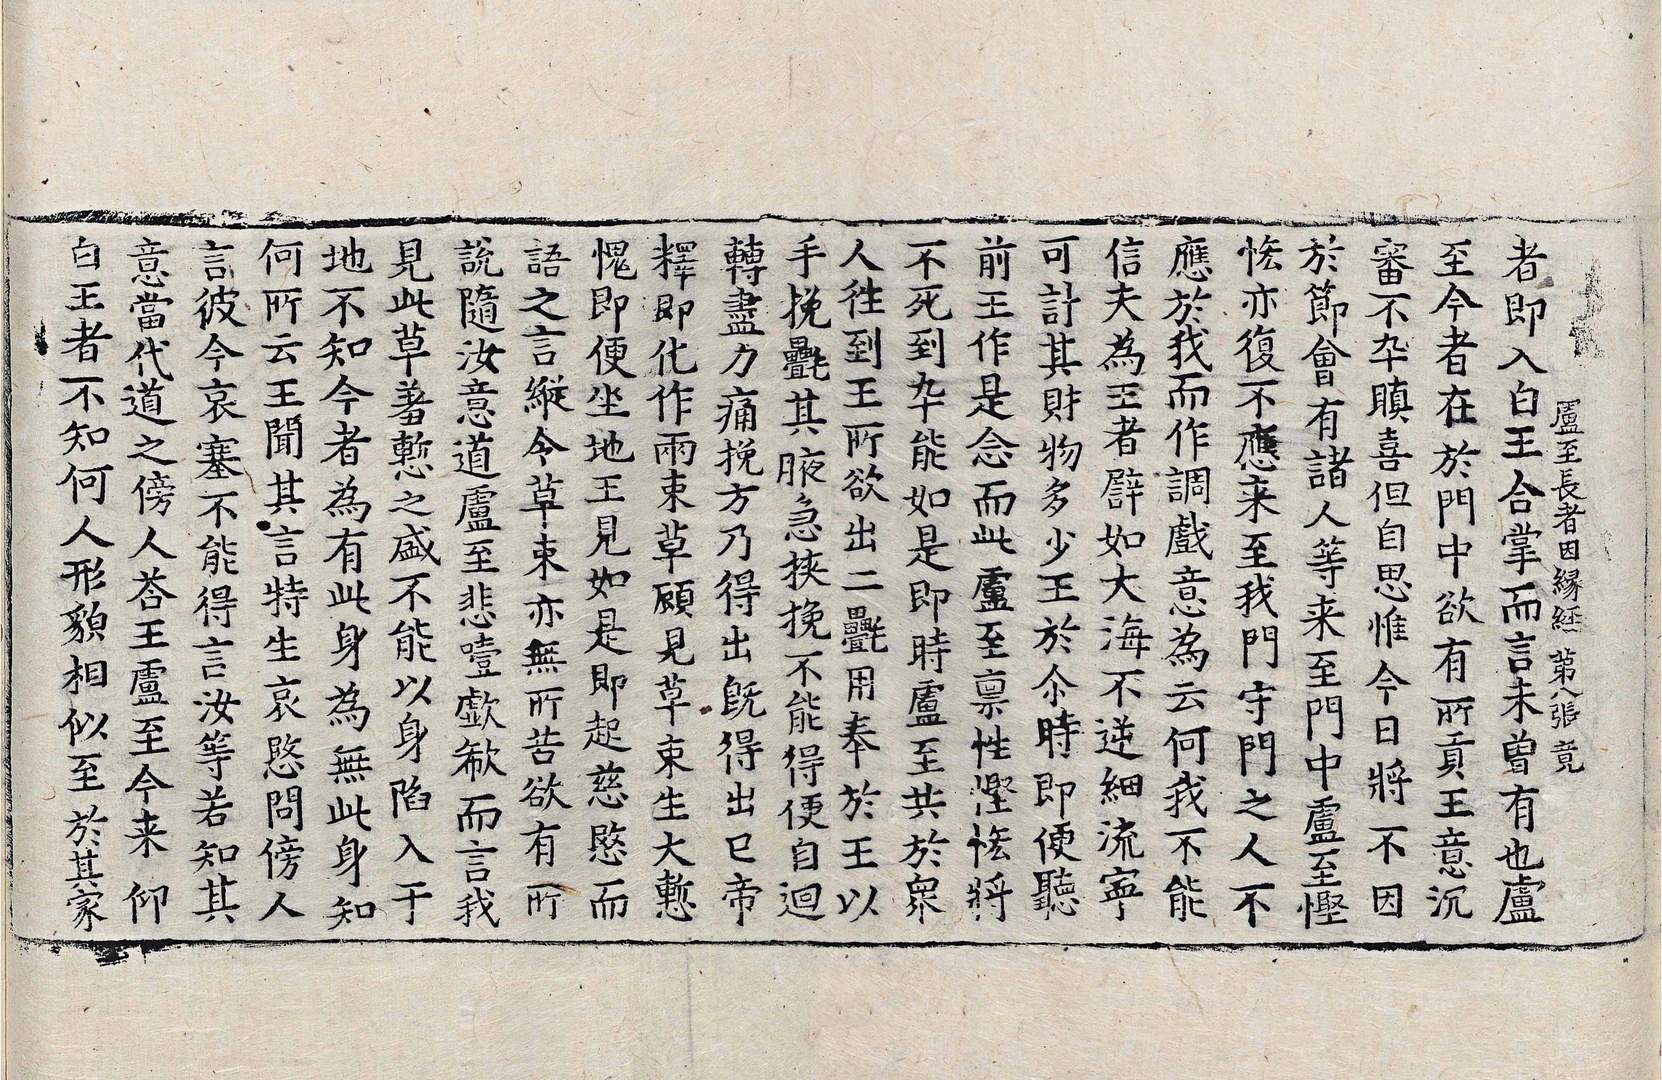 盧至長者因緣經 第八張 竟
者即入白王合掌而言未曾有也盧
至今者在於門中欲有所貢王意沉
審不卒瞋喜但自思惟今日將不因
於節會有諸人等来至門中盧至慳
恡亦復不應来至我門守門之人不
應於我而作調戲意為云何我不能
信夫為王者譬如大海不逆細流寧
可計其財物多少王於尒時即便聽
前王作是念而此盧至禀性慳恡將
不死到卒能如是即時盧至共於衆
人徃到王所欲出二㲲用奉於王以
手挽㲲其腋急挾挽不能得便自迴
轉盡力痛挽方乃得出旣得出已帝
釋即化作兩束草顧見草束生大慙
愧即便坐地王見如是即起慈愍而
語之言縱令草束亦無所苦欲有所
說隨汝意道盧至悲噎歔欷而言我
見此草羞慙之盛不能以身陷入于
地不知今者為有此身為無此身知
何所云王聞其言特生哀愍問傍人
言彼今哀塞不能得言汝等若知其
意當代道之傍人荅王盧至今来仰
白王者不知何人形貌相似至於其家